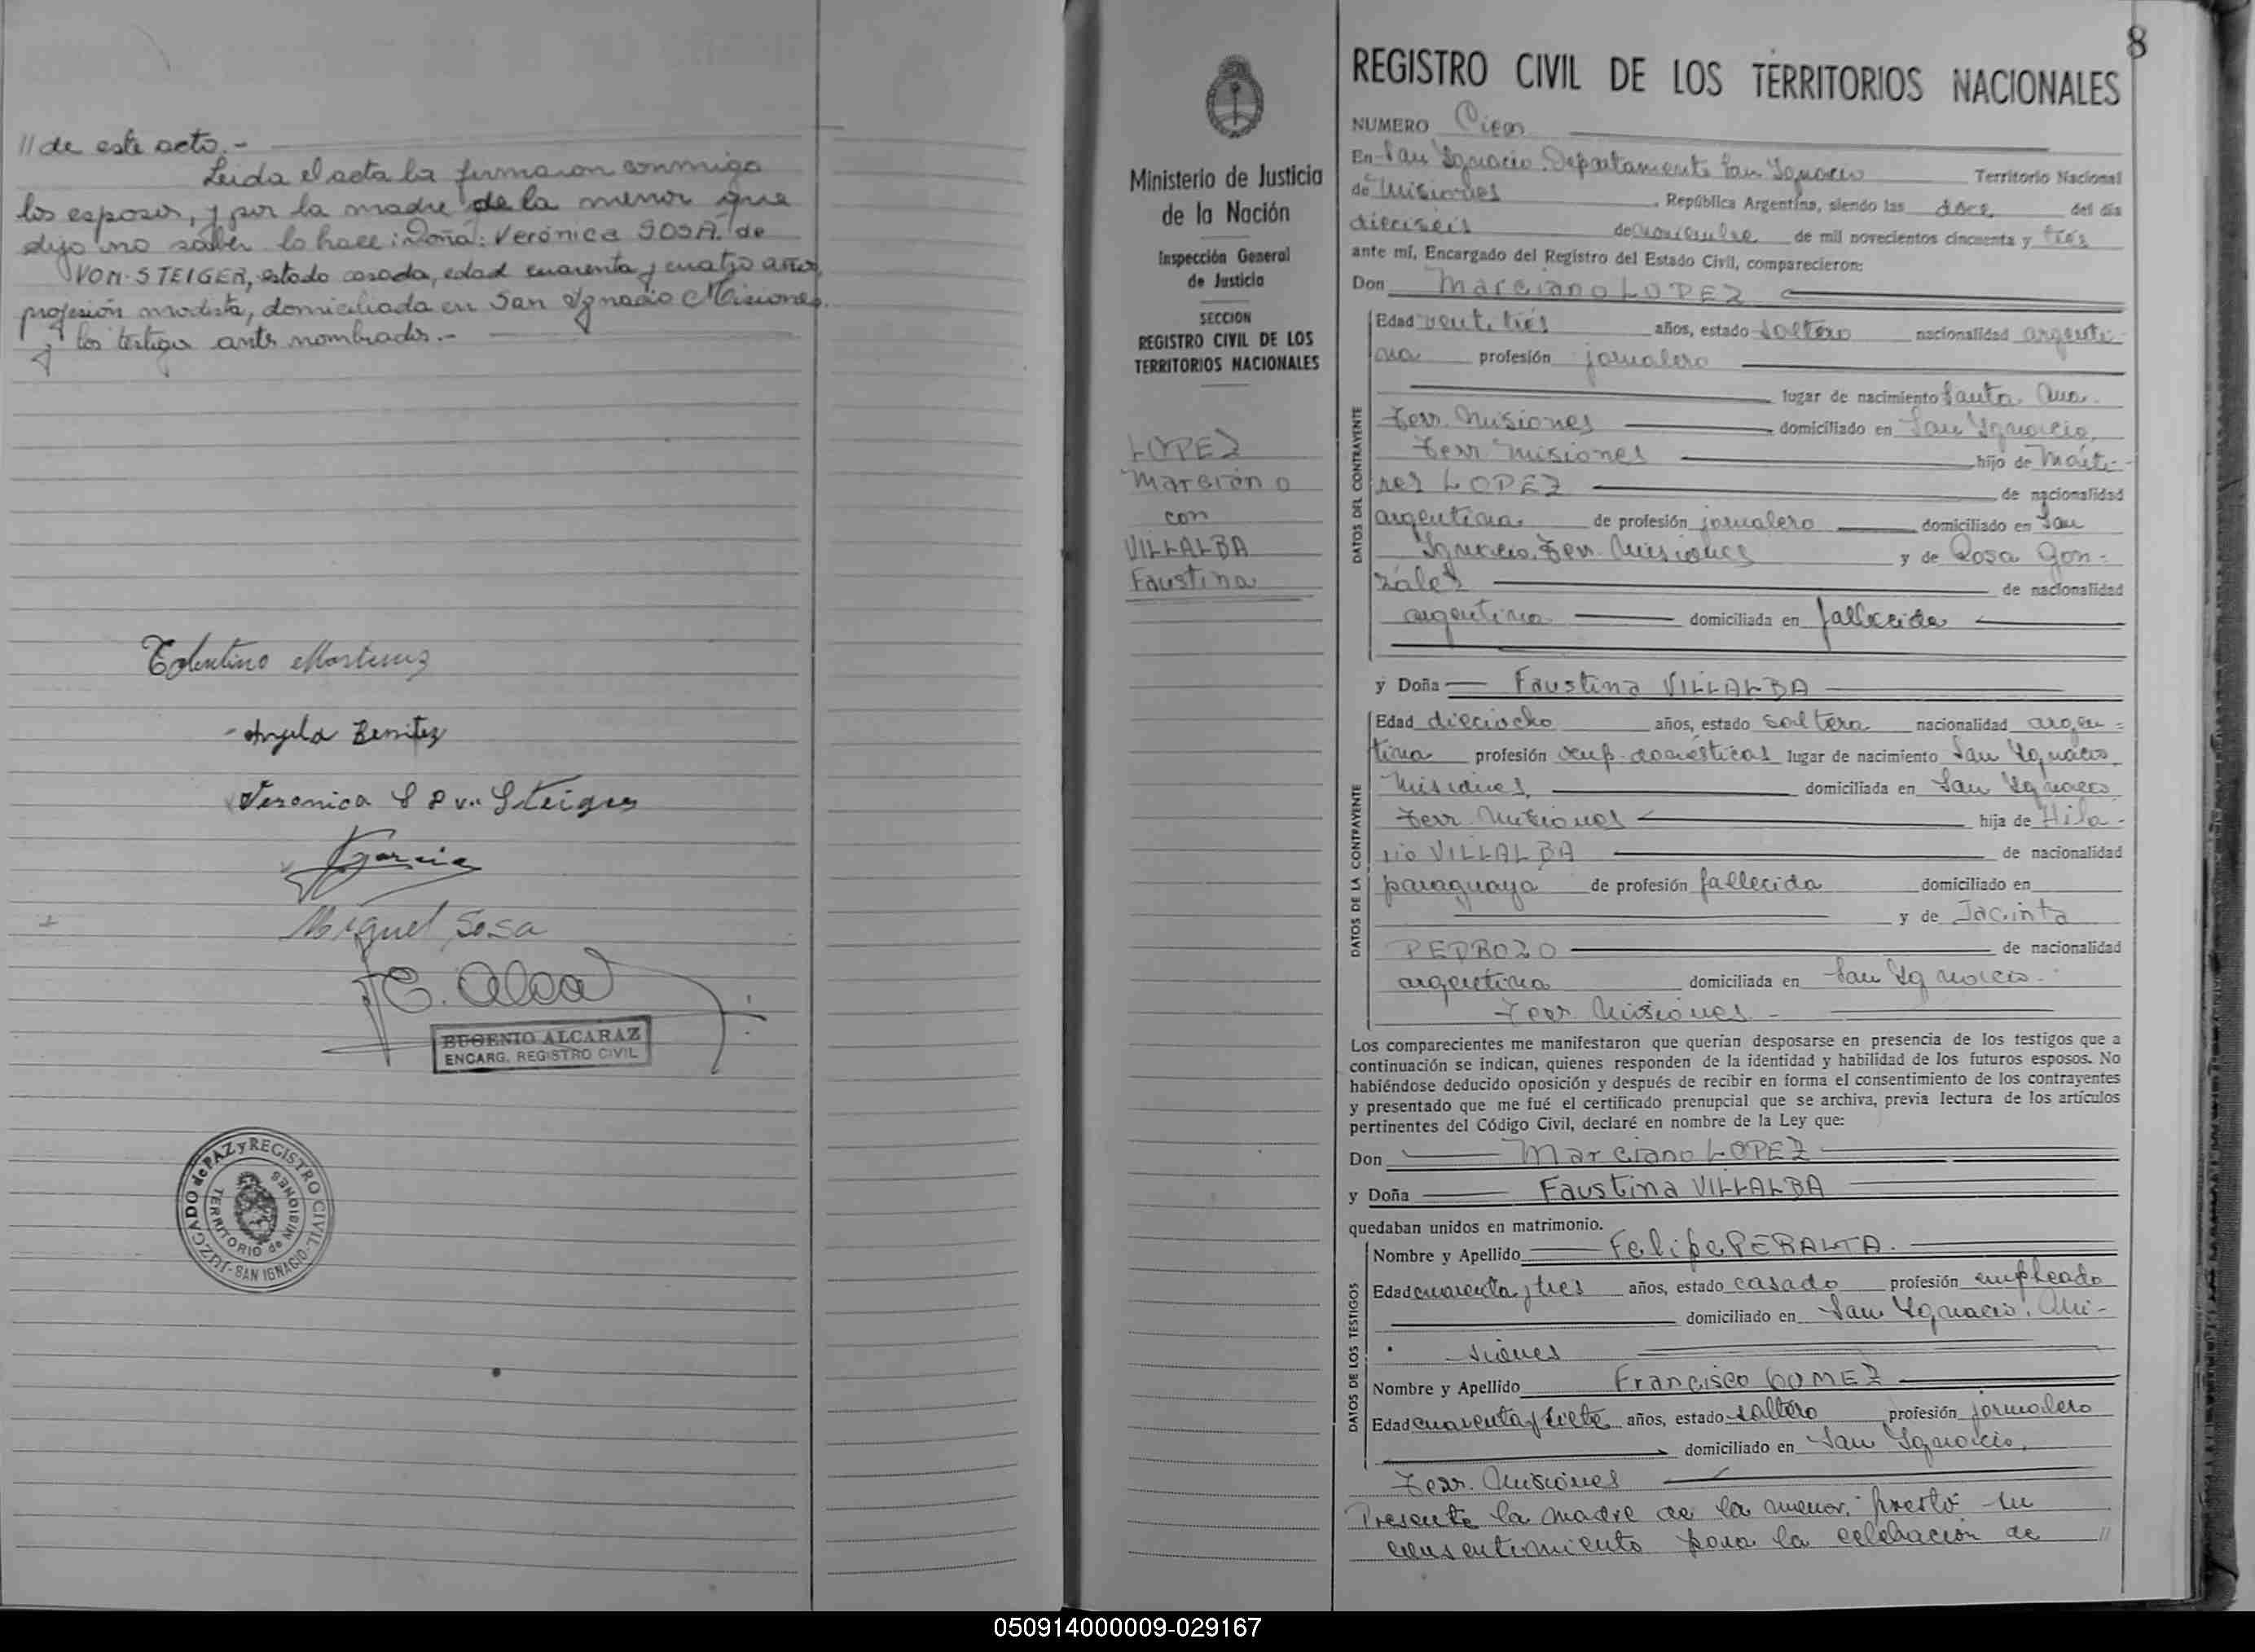 // de este acto.-
Leida el acta la firmaron conmigo
los esposos, y por la madre de la menor que
dijo no saber lo hace: Doña: Verónica SOSA de
VON-STEIGER, estado casada, edad cuarenta y cuatro años,
profesión modista, domiciliada en San Ygnacio Misiones.
y los testigos antes nombrados.-
Tolentino Martinez
Angela Benitez
Veronica S P v.. Steiger
Garcia
Miguel Sosa
E. Alca
EUGENIO ALCARAZ
ENCARG. REGISTRO CIVIL
JUZGADO de PAZ y REGISTRO CIVIL - SAN IGNACIO -
TERRITORIO de MISIONES
Ministerio de Justicia
de la Nación
Inspección General
de Justicia
SECCION
REGISTRO CIVIL DE LOS
TERRITORIOS NACIONALES
LOPEZ
Marciano
con
VILLALBA
Faustina
8
REGISTRO CIVIL DE LOS TERRITORIOS NACIONALES
NUMERO Cien
En San Ygnacio. Departamento San Ygnacio Territorio Nacional
de Misiones, República Argentina, siendo las doce del día
dieciseis de noviembre de mil novecientos cincuenta y tres
ante mí, Encargado del Registro del Estado Civil, comparecieron:
Don Marciano LOPEZ
DATOS DEL CONTRAYENTE
Edad veinte tres años, estado soltero nacionalidad argenti-
na profesión jornalero
lugar de nacimiento Santa Ana.
Terr. Misiones domiciliado en San Ygnacio,
Terr Misiones hijo de Marti-
res LOPEZ de nacionalidad
argentina de profesión jornalero domiciliado en San
Ygnacio, Terr. Misiones y de Rosa Gon-
zález de nacionalidad
argentina domiciliada en fallecida
y Doña Faustina VILLALBA
DATOS DE LA CONTRAYENTE
Edad dieciocho años, estado soltera nacionalidad argen-
tina profesión ocup. domésticas lugar de nacimiento San Ygnacio,
Misiones, domiciliada en San Ygnacio
Terr. Misiones hija de Hila-
rio VILLALBA de nacionalidad
paraguaya de profesión fallecida domiciliado en
y de Jacinta
PEDROZO de nacionalidad
argentina domiciliada en San Ygnacio.
Terr. Misiones -
Los comparecientes me manifestaron que querían desposarse en presencia de los testigos que a
continuación se indican, quienes responden de la identidad y habilidad de los futuros esposos. No
habiéndose deducido oposición y después de recibir en forma el consentimiento de los contrayentes
y presentado que me fué el certificado prenupcial que se archiva, previa lectura de los artículos
pertinentes del Código Civil, declaré en nombre de la Ley que:
Don Marciano LOPEZ
y Doña Faustina VILLALBA
quedaban unidos en matrimonio.
DATOS DE LOS TESTIGOS
Nombre y Apellido Felipe PERALTA.
Edad cuarenta y tres años, estado casado profesión empleado
domiciliado en San Ygnacio. Mi-
siones
Nombre y Apellido Francisco GOMEZ
Edad cuarenta y siete años, estado soltero profesión jornalero
domiciliado en San Ygnacio,
Terr. Misiones
Presente la madre de la menor, prestó su
consentimiento para la celebración de //
050914000009-029167